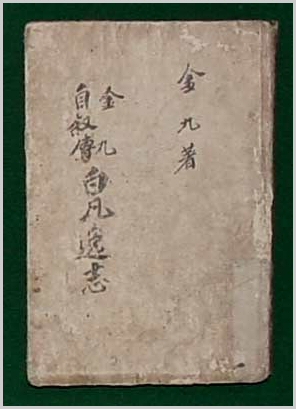 金九著
金九
自叙傳 白凡逸志